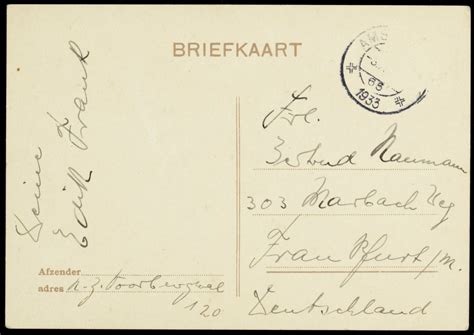 BRIEFKAART
AM
1933
Deine
Edith Frank
Afzender
adres N.Z. Voorburgwal
120
Frl.
Gertrud Naumann
303 Marbach Weg
Frankfurt/M.
Deutschland